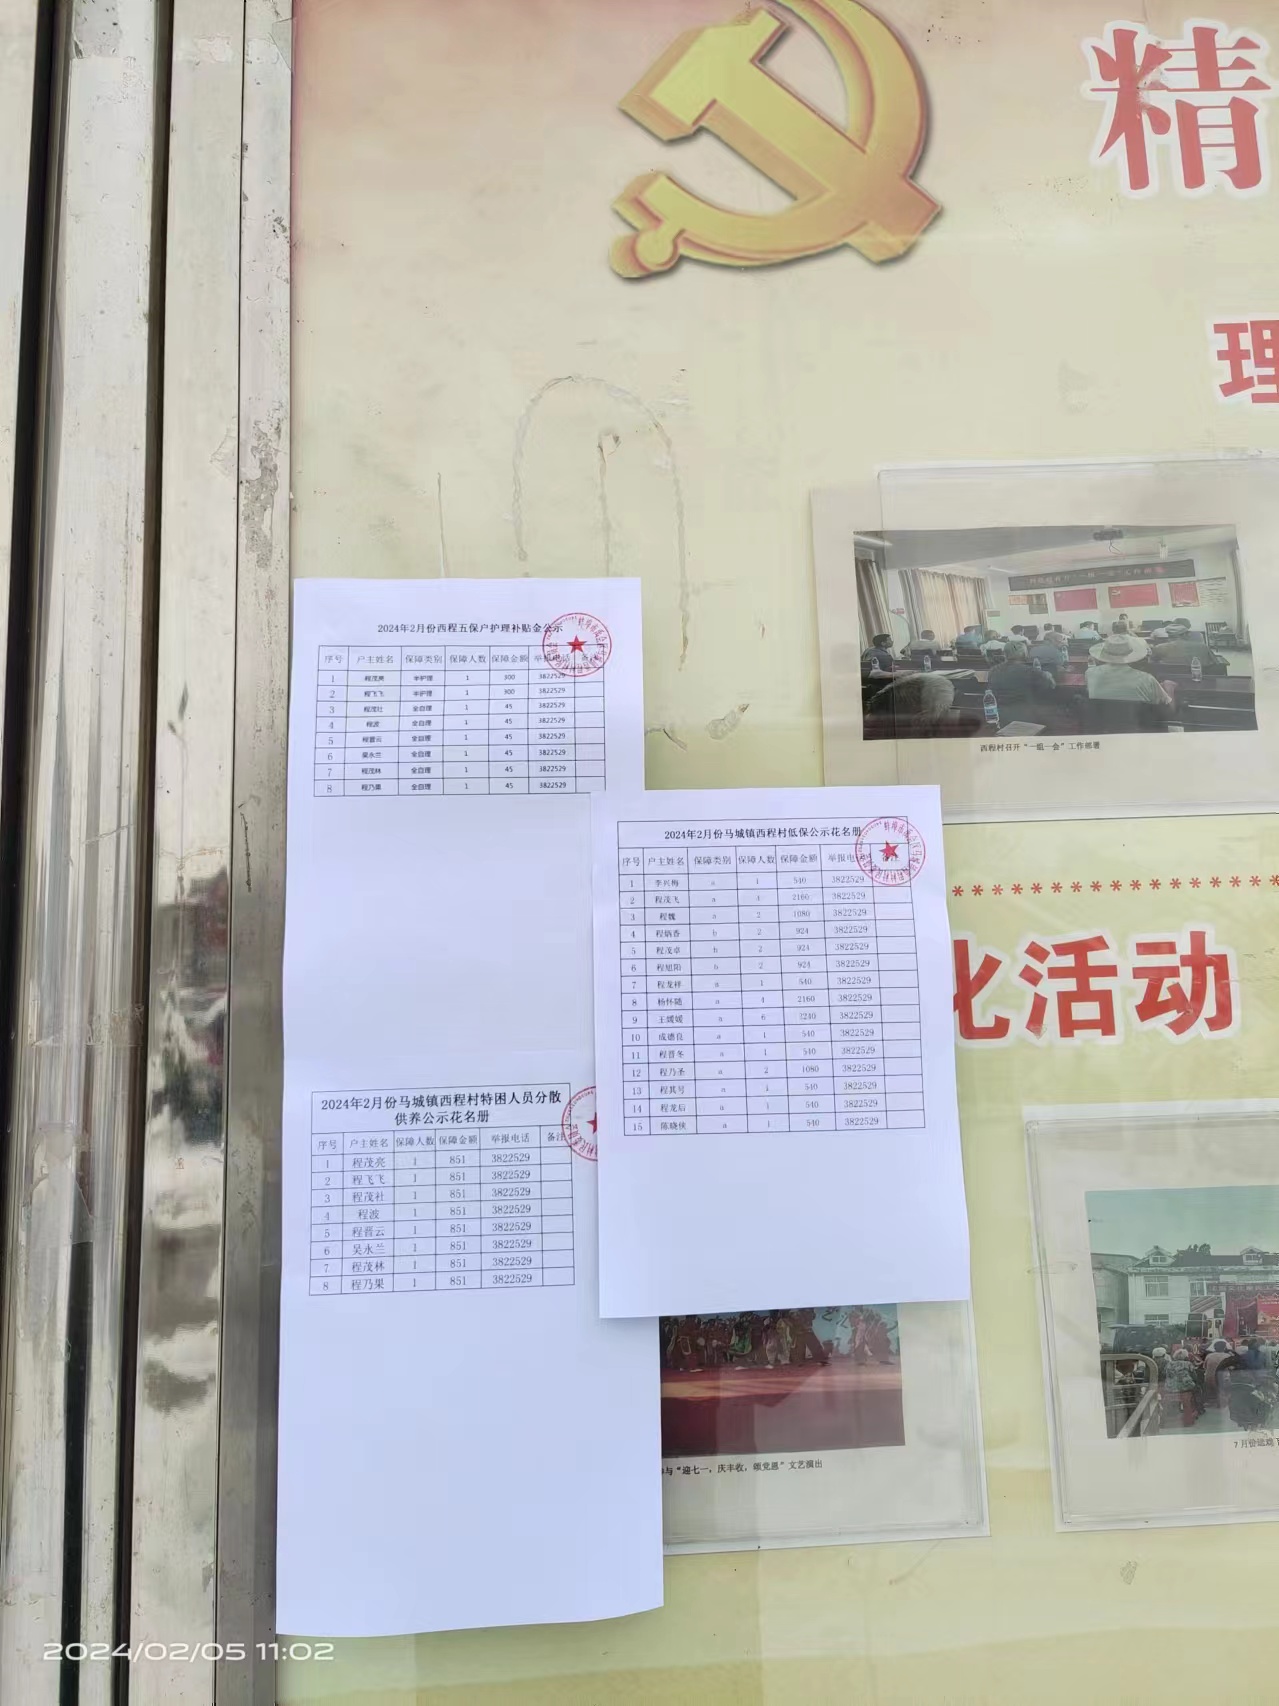 精
理
2024年2月份西程五保户护理补贴金公示
序号 户主姓名 保障类别 保障人数 保障金额 举报电话 备注
1 程茂亮 半护理 1 300 3822529
2 程飞飞 半护理 1 300 3822529
3 程茂社 全自理 1 45 3822529
4 程波 全自理 1 45 3822529
5 程晋云 全自理 1 45 3822529
6 吴永兰 全自理 1 45 3822529
7 程茂林 全自理 1 45 3822529
8 程乃果 全自理 1 45 3822529
西程村召开“一组一会”工作部署
2024年2月份马城镇西程村低保公示花名册
序号 户主姓名 保障类别 保障人数 保障金额 举报电话 备注
1 李兴梅 a 1 540 3822529
2 程茂飞 a 4 2160 3822529
3 程魏 a 2 1080 3822529
4 程炳香 b 2 924 3822529
5 程茂卓 b 2 924 3822529
6 程旭阳 b 2 924 3822529
7 程龙祥 a 1 540 3822529
8 杨怀随 a 4 2160 3822529
9 王媛媛 a 6 3240 3822529
10 成德良 a 1 540 3822529
11 程晋冬 a 1 540 3822529
12 程乃圣 a 2 1080 3822529
13 程其号 a 1 540 3822529
14 程龙后 a 1 540 3822529
15 陈晓侠 a 1 540 3822529
化活动
2024年2月份马城镇西程村特困人员分散
供养公示花名册
序号 户主姓名 保障人数 保障金额 举报电话 备注
1 程茂亮 1 851 3822529
2 程飞飞 1 851 3822529
3 程茂社 1 851 3822529
4 程波 1 851 3822529
5 程晋云 1 851 3822529
6 吴永兰 1 851 3822529
7 程茂林 1 851 3822529
8 程乃果 1 851 3822529
与“迎七一，庆丰收，颂党恩”文艺演出
7月份
2024/02/05 11:02